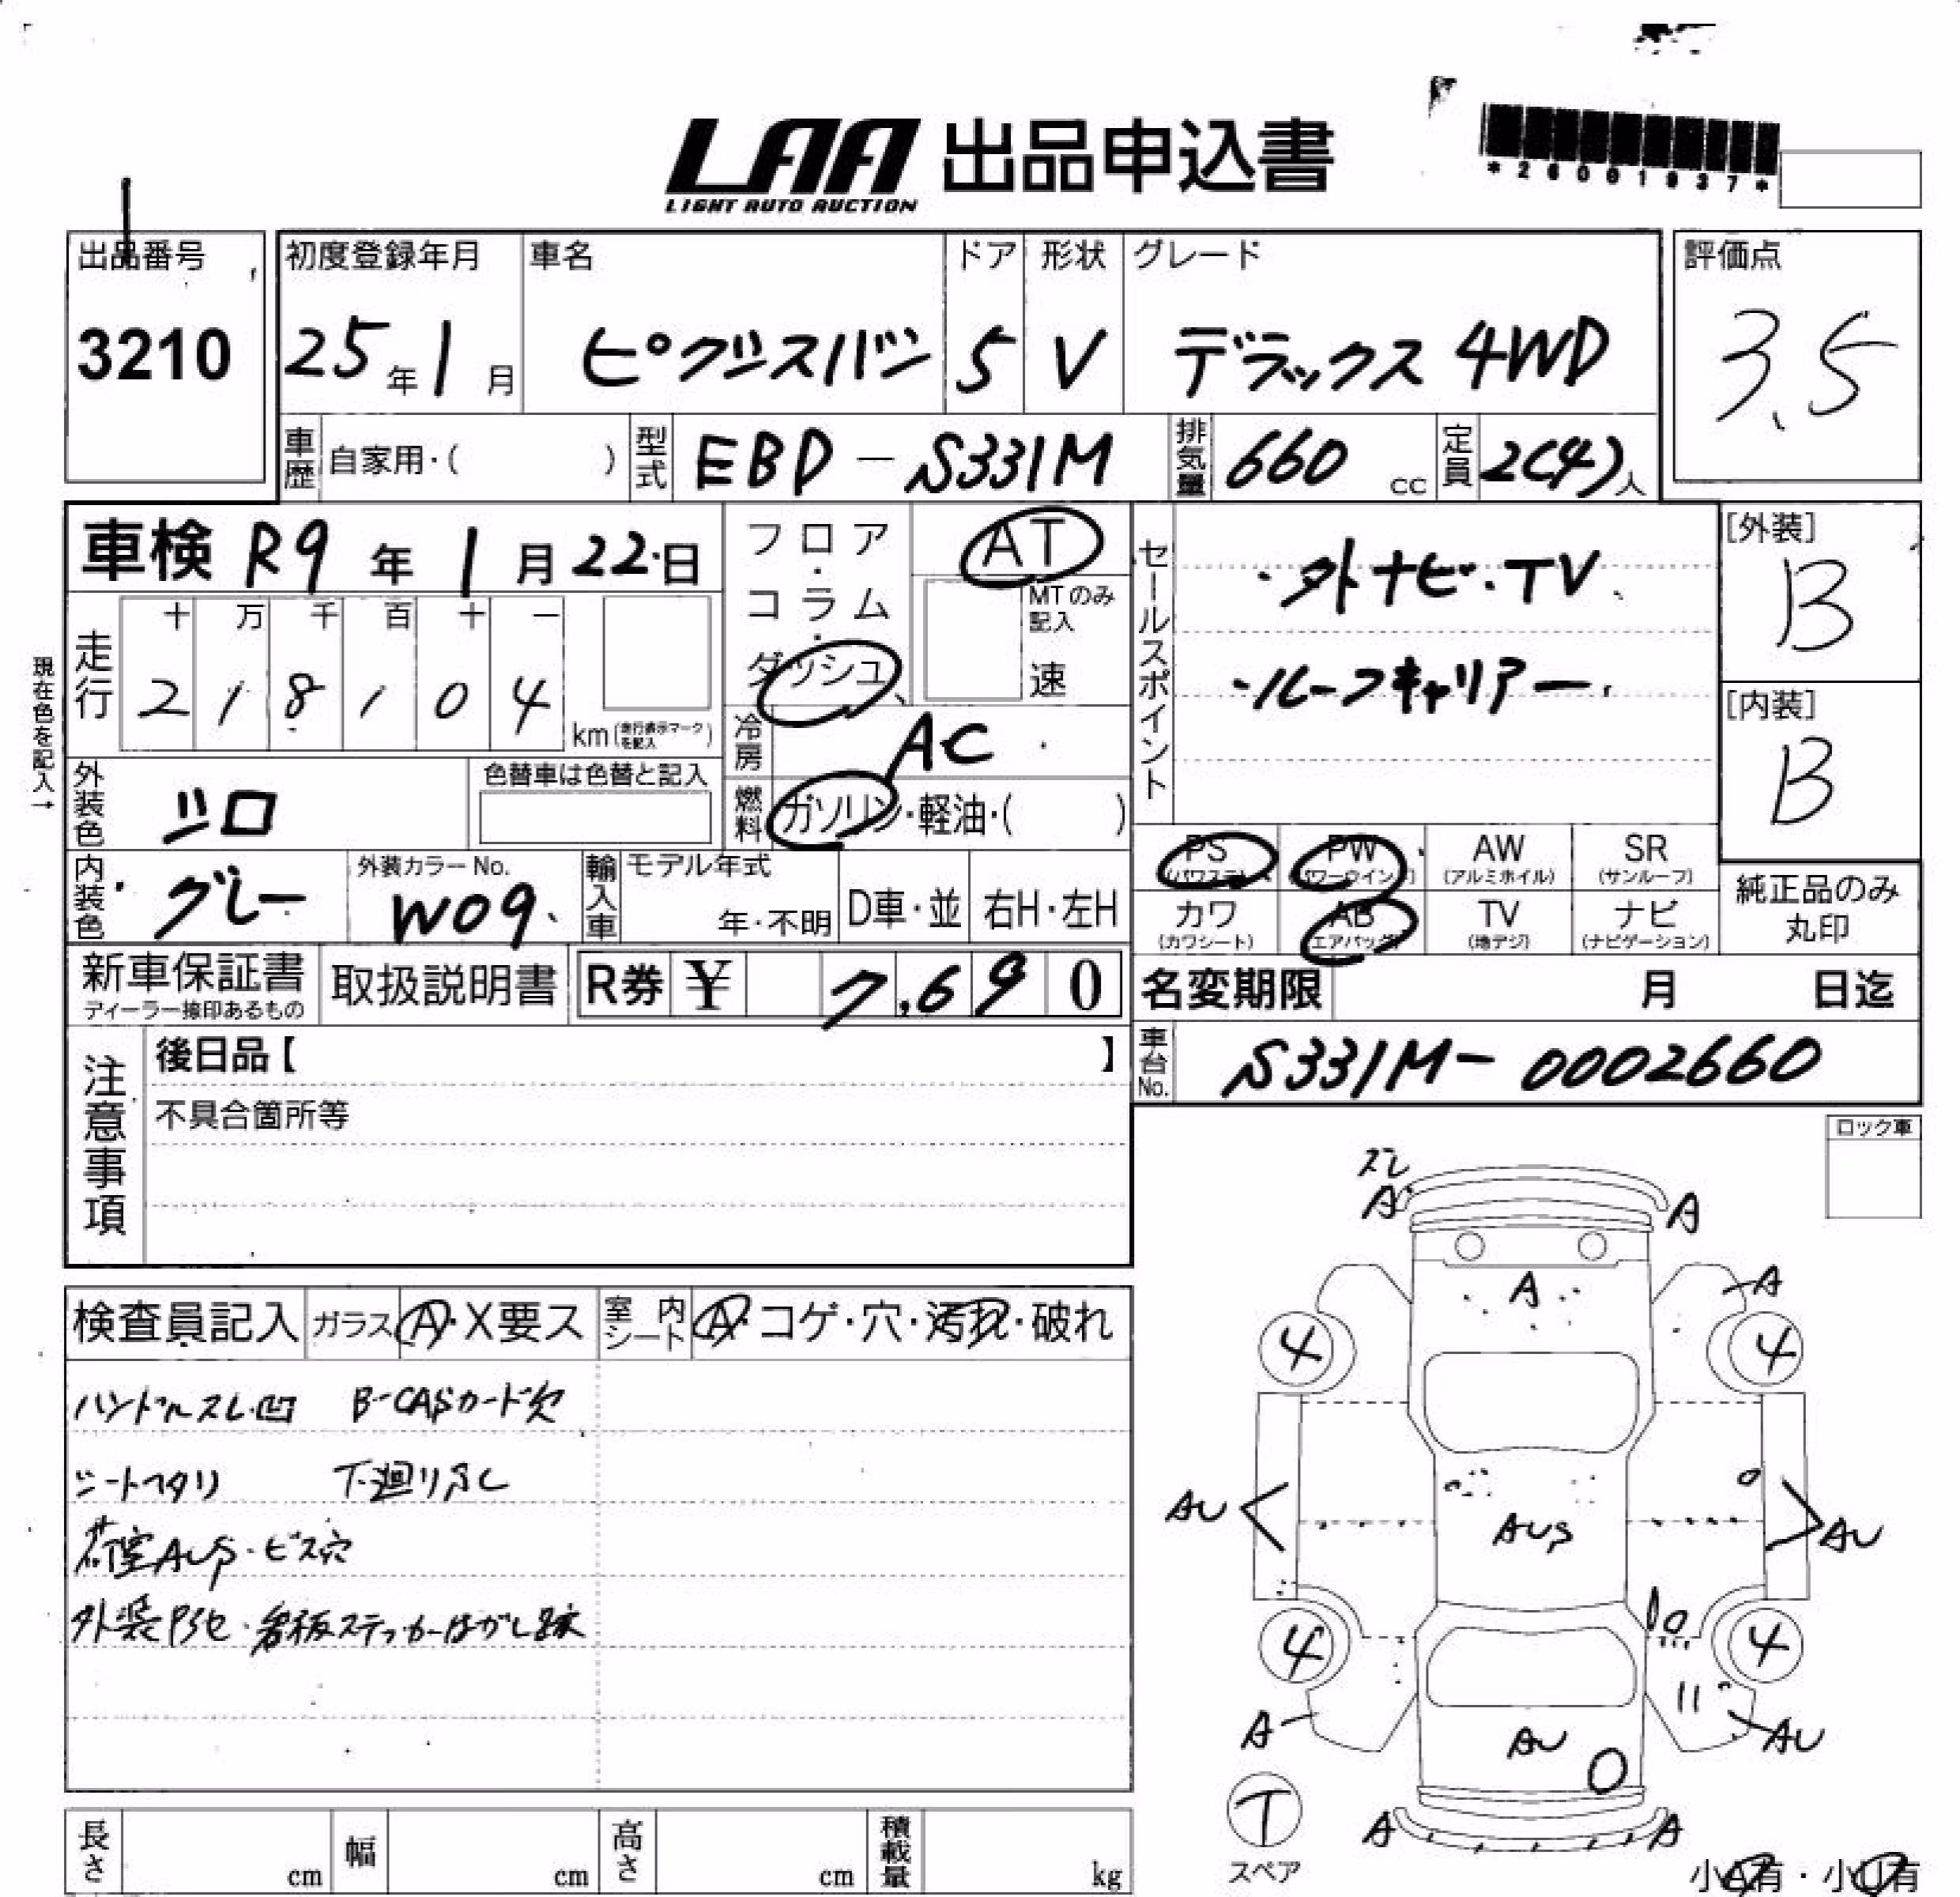 LAA 出品申込書
LIGHT AUTO AUCTION
*26001937*
出品番号 初度登録年月 車名 ドア 形状 グレード 評価点
3210 25年1月 ピクシスバン 5 V デラックス 4WD 3.5
車歴 自家用・( ) 型式 EBD-S331M 排気量 660 cc 定員 2(4)人
車検 R9年1月22日 フロア・コラム・ダッシュ AT
MTのみ記入 速
セールスポイント
・外ナビ・TV
・ルーフキャリアー
[外装]
B
[内装]
B
現在色を記入→
走行 十 万 千 百 十 一
2 1 8 1 0 4 km(走行表示マークを記入)
冷房 AC
外装色 シロ 色替車は色替と記入
燃料 ガソリン・軽油・( )
内装色 グレー 外装カラーNo. W09 輸入車 モデル年式 年・不明 D車・並 右H・左H
PS(パワステ) PW(パワーウインド) AW(アルミホイル) SR(サンルーフ)
カワ(カワシート) AB(エアバッグ) TV(地デジ) ナビ(ナビゲーション)
純正品のみ丸印
新車保証書 ディーラー捺印あるもの 取扱説明書 R券 ¥ 7,690 名変期限 月 日迄
注意事項 後日品【 】
車台No. S331M-0002660
不具合箇所等
ロック車
検査員記入 ガラス A・X要ス 室内シート A・コゲ・穴・汚れ・破れ
ハンドルスレ・凹 B-CASカード欠
シートヘタリ 下廻りSC
荷室AUS・ビス穴
外装 ・看板ステッカーはがし跡
スレ
A A
A A
4 4
AU AUS AU
4 4
A AU AU
T
スペア
A A
小A有・小U有
長さ cm 幅 cm 高さ cm 積載量 kg